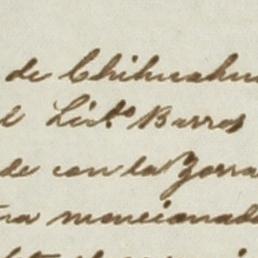 de Chihuahua
l List.º Barros
de con la Zorra
na moncionada